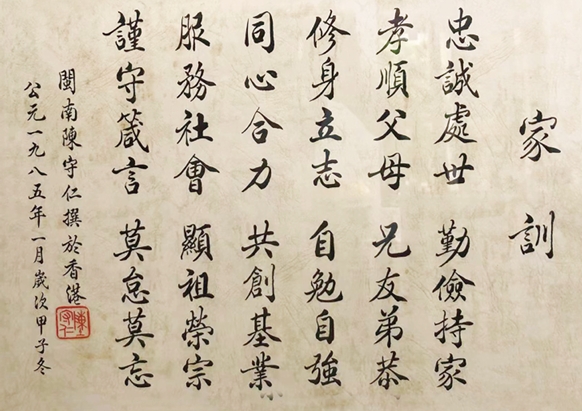 家訓
忠誠處世 勤儉持家
孝順父母 兄友弟恭
修身立志 自勉自強
同心合力 共創基業
服務社會 顯祖榮宗
謹守箴言 莫怠莫忘
閩南陳守仁撰於香港
公元一九八五年一月歲次甲子冬
陳守仁